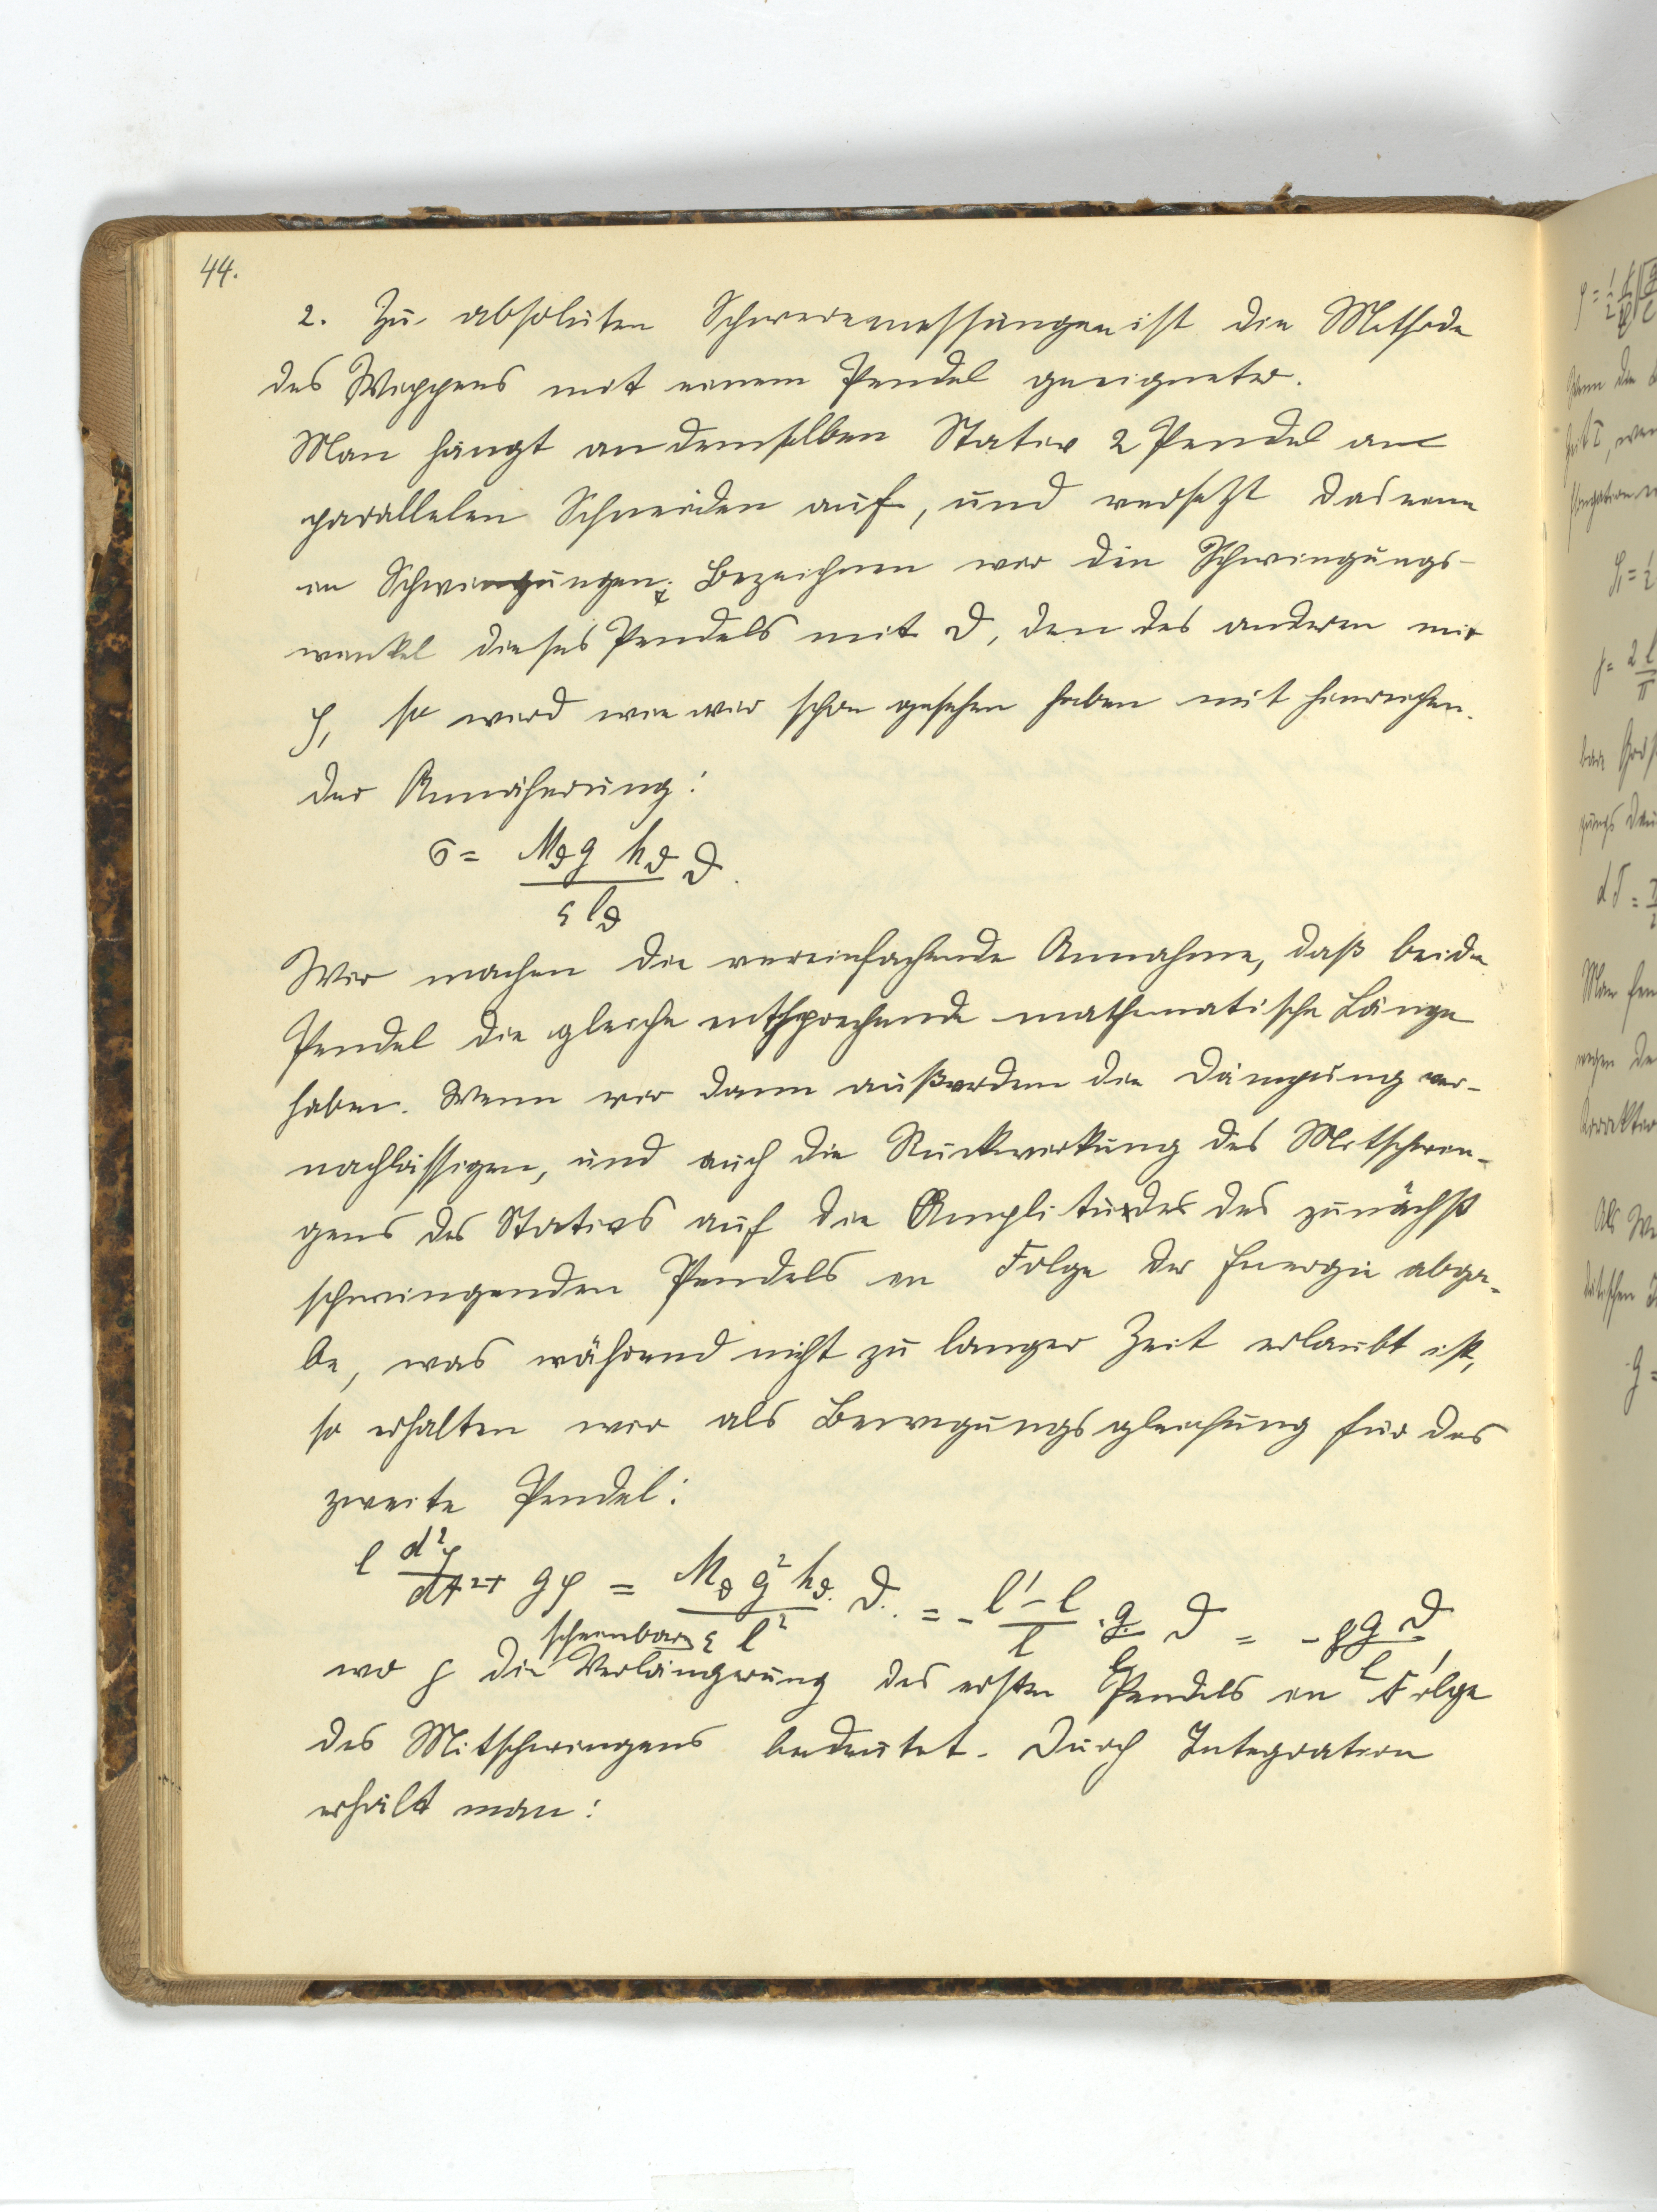 44.
2. Zu absoluten Schweremessungen ist die Methode
des Wippens mit einem Pendel geeigneter.
Man hängt an demselben Stativ 2 Pendel an
parallelen Schneiden auf, und versetzt das eine
in Schwingungen. Bezeichnen wir den Schwingungs-
winkel dieses Pendels mit ϑ, den des anderen mit
φ, so wird wie wir schon gesehen haben mit hinreichen-
der Annäherung:
σ = M_ϑ g h_ϑ / ε l_ϑ ϑ.
Wir machen die vereinfachende Annahme, daß beide
Pendel die gleiche entsprechende mathematische Länge
haben. Wenn wir dann außerdem die Dämpfung ver-
nachlässigen, und auch die Rückwirkung des Mitschwin-
gens des Stativs auf die Amplitude des zunächst
schwingenden Pendels in Folge der Energie abga-
be, was während nicht zu langer Zeit erlaubt ist,
so erhalten wir als Bewegungsgleichung für das
zweite Pendel:
l d²φ/dt² + gφ = M_ϑ g² h_ϑ / ε l² ϑ = - l'-l / l · g / l ϑ = - ρ g ϑ / l,
scheinbare
wo ρ die Verlängerung des ersten Pendels in Folge
des Mitschwingens bedeutet. Durch Integration
erhält man: